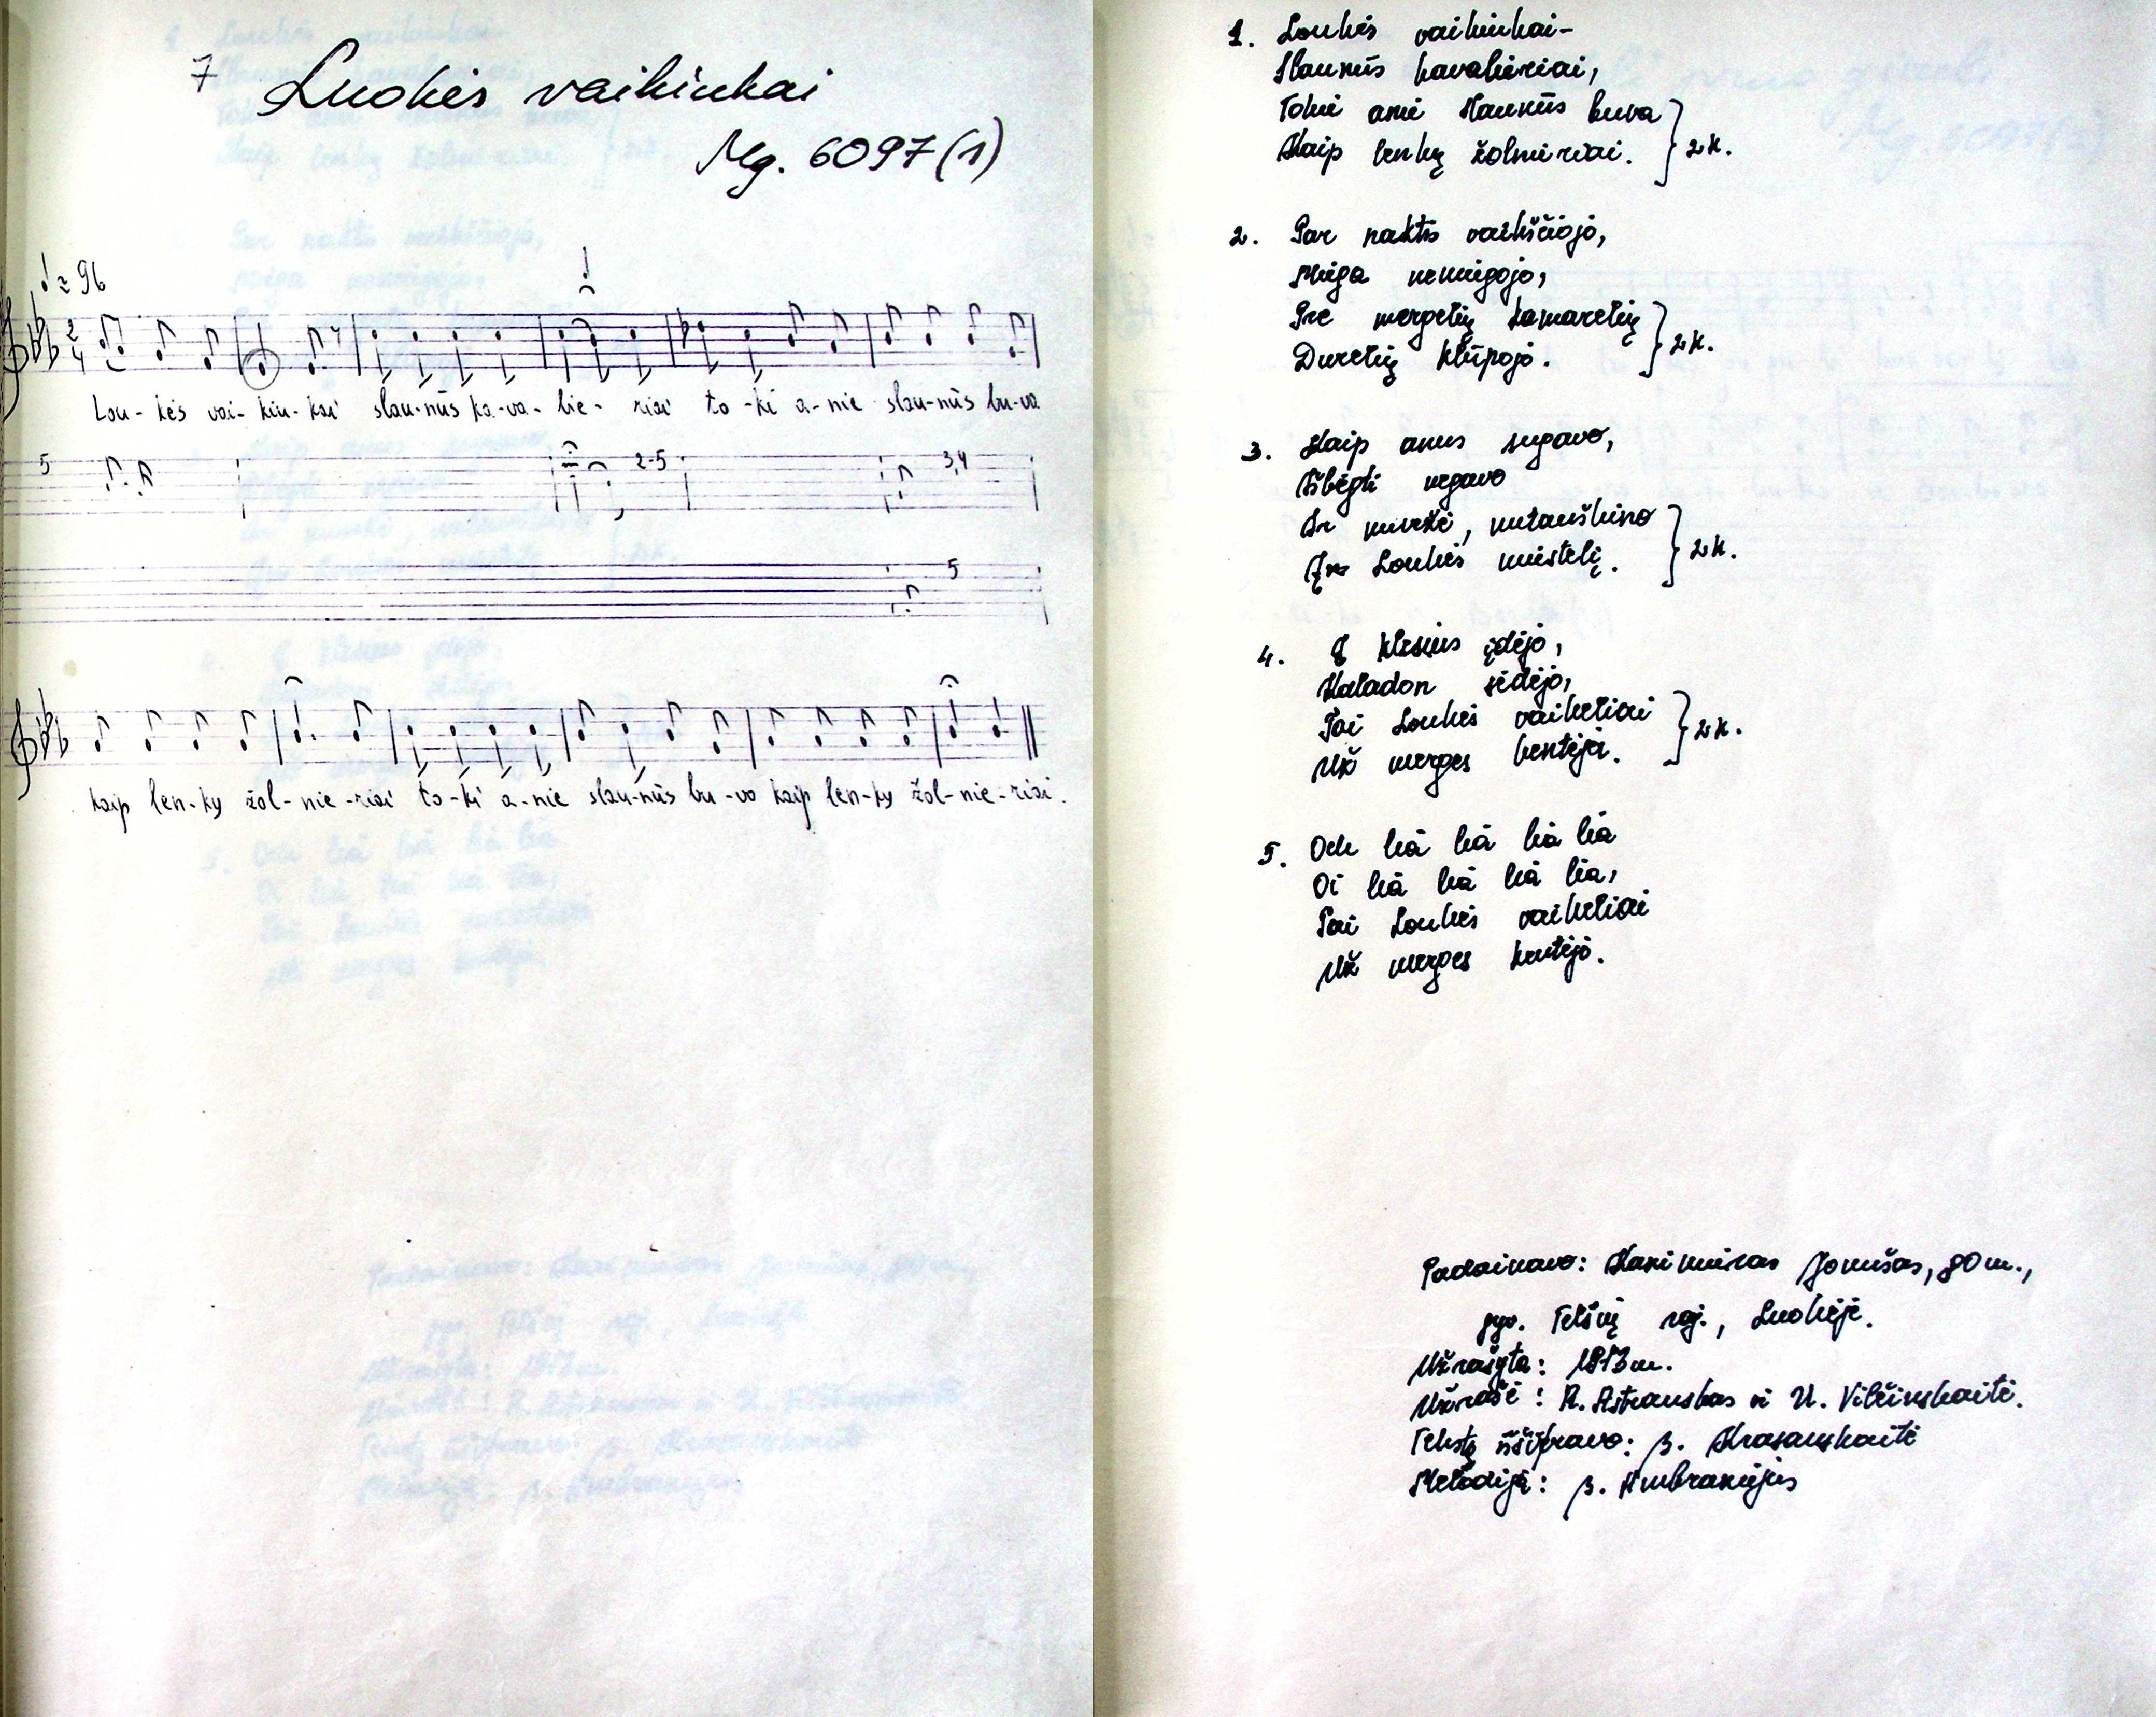 7 Luokės vaikinkai
Mg. 6097(1)
♩ ≈ 96
2/4
Lou-kės vai-kin-kai slau-nūs ka-va-lie-riai to-ki a-nie slau-nūs bu-va
5 2-5 3,4
5
kaip len-ky žol-nie-riai to-ki a-nie slau-nūs bu-va kaip len-ky žol-nie-riai.
1. Loukės vaikinkai-
Slaunūs kavalieriai,
Tokie anie slaunūs buva
Kaip lenkų žolnieriai. } 2k.
2. Par naktis vaikščiojo,
Miega nemiegojo,
Pre mergelių kamarelių
Durelių klūpojo. } 2k.
3. Kaip anus sugavo,
Išbėgti negavo
Ir nuvežė, nutauškino
Loukės miestelį. } 2k.
4. Į klesius įdėjo,
Kaladon sėdėjo,
Tai Loukės vaikeliai
Už merges kentėja. } 2k.
5. Och lia lia lia lia
Oi lia lia lia lia,
Tai Loukės vaikeliai
Už merges kentėjo.
Padainavo: Kazimieras Jomušas, 80 m.,
gyv. Telšių raj., Luokėje.
Užrašyta: 1973 m.
Užrašė: R. Astrauskas ir U. Vilčinskaitė.
Tekstą iššifravo: B. Krasauskaitė
Melodiją: B. Ambraziejus